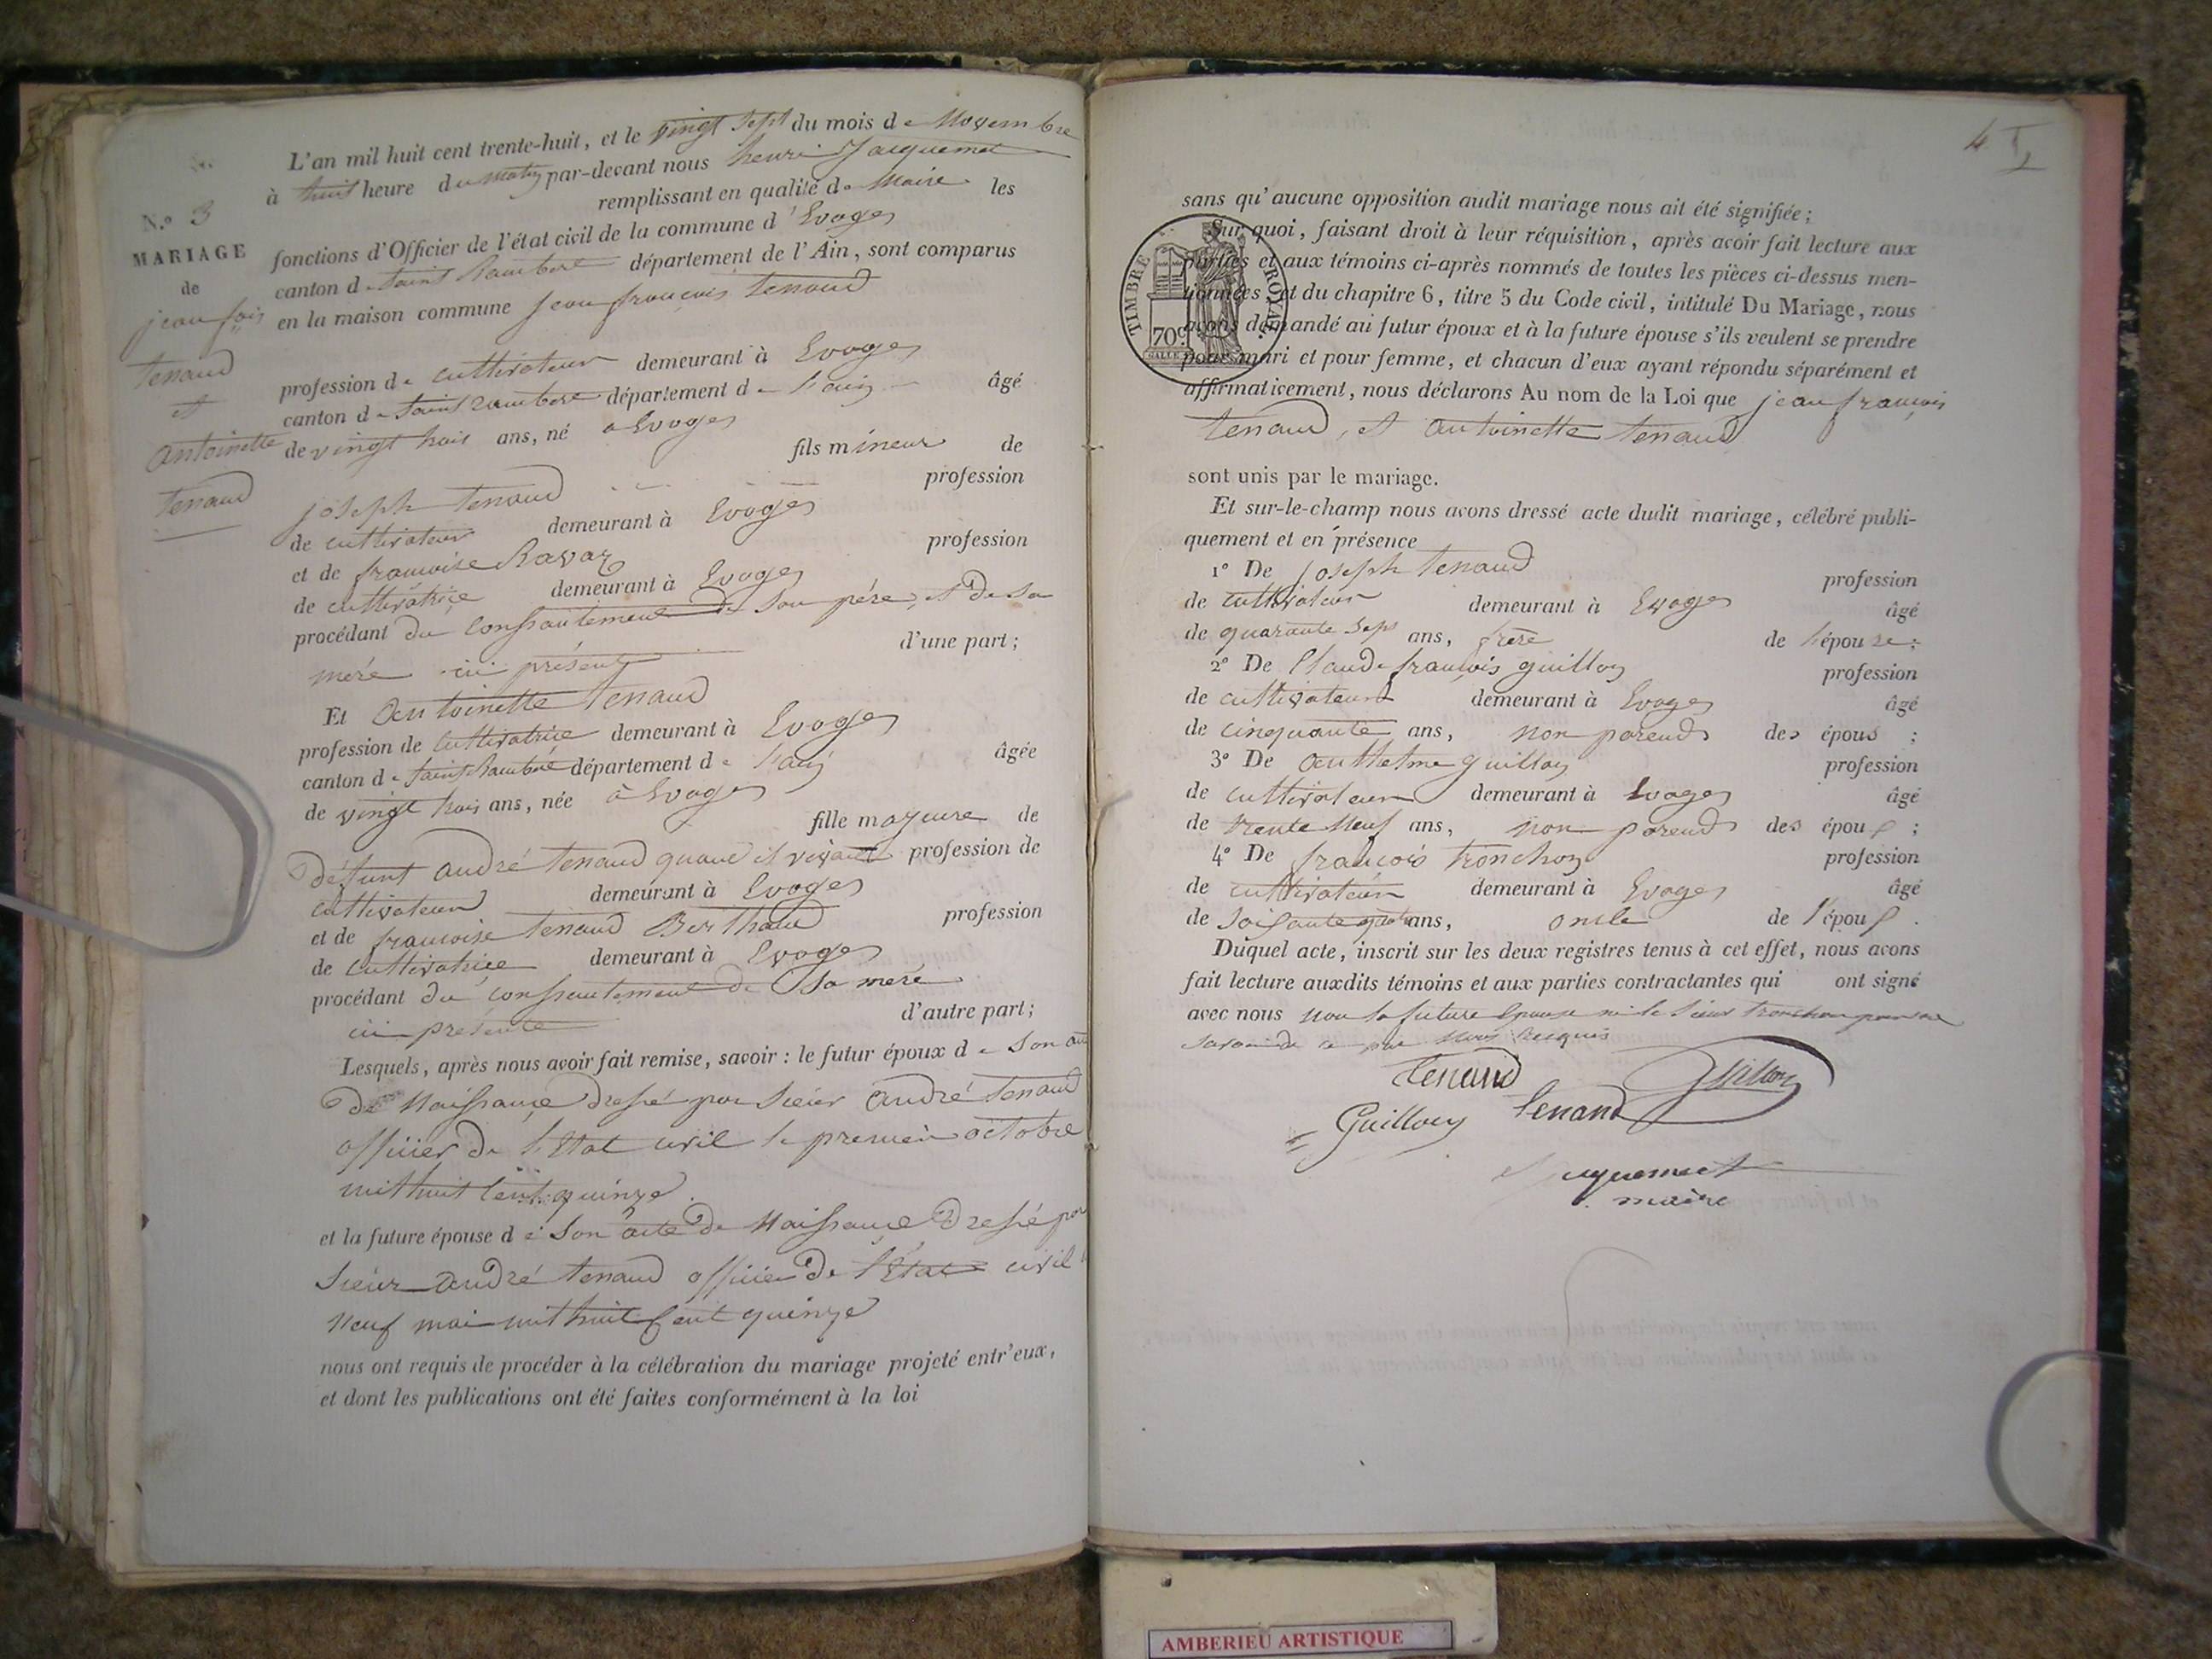 L'an mil huit cent trente-huit, et le vingt sept du mois de Novembre
à huit heure du matin par-devant nous henri Jacquemet
remplissant en qualité de Maire les
fonctions d'Officier de l'état civil de la commune d'Evoges
canton de Saint Rambert département de l'Ain, sont comparus
en la maison commune jean françois tenand
profession de cultivateur demeurant à Evoges
canton de Saint Rambert département de l'ain âgé
de vingt trois ans, né a Evoges
fils mineur de
joseph tenand profession
de cultivateur demeurant à Evoges
et de francoise Ravaz profession
de cultivatrice demeurant à Evoges
procédant du consantement de son père, et de sa
mere ici présent d'une part;
Et Antoinette tenand
profession de cultivatrice demeurant à Evoges
canton de Saint Rambert département de l'ain âgée
de vingt trois ans, née à Evoges
fille majeure de
défunt andré tenand quand il vivait profession de
cultivateur demeurant à Evoges
et de francoise tenand Berthaud profession
de cultivatrice demeurant à Evoges
procédant du consentement de sa mere
ici présente d'autre part;
Lesquels, après nous avoir fait remise, savoir : le futur époux de Son
de Naissance dressé par Sieur andré tenand
officier de l'Etat civil le premier octobre
mil huit cent quinze
et la future épouse de Son acte de Naissance dressé par
Sieur andré tenand officier de l'Etat civil
Neuf mai mil huit cent quinze
nous ont requis de procéder à la célébration du mariage projeté entr'eux,
et dont les publications ont été faites conformément à la loi
N.º 3
MARIAGE
de
jean fois
tenand
et
antoinette
tenand
4
sans qu'aucune opposition audit mariage nous ait été signifiée;
Sur quoi, faisant droit à leur réquisition, après avoir fait lecture aux
parties et aux témoins ci-après nommés de toutes les pièces ci-dessus men-
tionnées, et du chapitre 6, titre 5 du Code civil, intitulé Du Mariage, nous
avons demandé au futur époux et à la future épouse s'ils veulent se prendre
pour mari et pour femme, et chacun d'eux ayant répondu séparément et
affirmativement, nous déclarons Au nom de la Loi que jean françois
tenand, et antoinette tenand
TIMBRE ROYAL
70c.
sont unis par le mariage.
Et sur-le-champ nous avons dressé acte dudit mariage, célébré publi-
quement et en présence
1º De joseph tenand profession
de cultivateur demeurant à Evoges âgé
de quarante sept ans, frere de l'épouse;
2º De Claude françois guillon profession
de cultivateur demeurant à Evoges âgé
de cinquante ans, non parend des épous ;
3º De anthelme guillon profession
de cultivateur demeurant à Evoges âgé
de trente Neuf ans, non parend des épous ;
4º De francois tronchon profession
de cultivateur demeurant à Evoges âgé
de soisante quatre ans, oncle de l'épous .
Duquel acte, inscrit sur les deux registres tenus à cet effet, nous avons
fait lecture auxdits témoins et aux parties contractantes qui ont signé
avec nous non la future Epouse ni le Sieur tronchon pour ne
savoir de ce par Nous Requis
tenand Guillon
Guillon tenand
Jacquemet
maire
AMBERIEU ARTISTIQUE